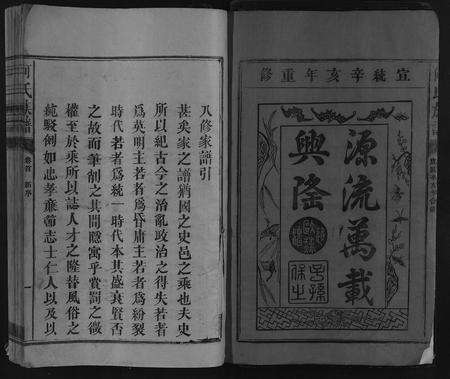 宣統辛亥年重修
源流萬載
興隆
子孫
保之
八修家譜引
甚矣家之譜猶國之史邑之乘也夫史
所以紀古今之治亂政治之得失若者
爲英明主若者爲昏庸主若者爲紛裂
時代若者爲統一時代本其盛衰賢否
之故而筆削之其間隱寓乎賞罰之微
權至於乘所以誌人才之隆替風俗之
純駁劍如忠孝廉節志士仁人以及以
氏族譜
卷首 新序
一